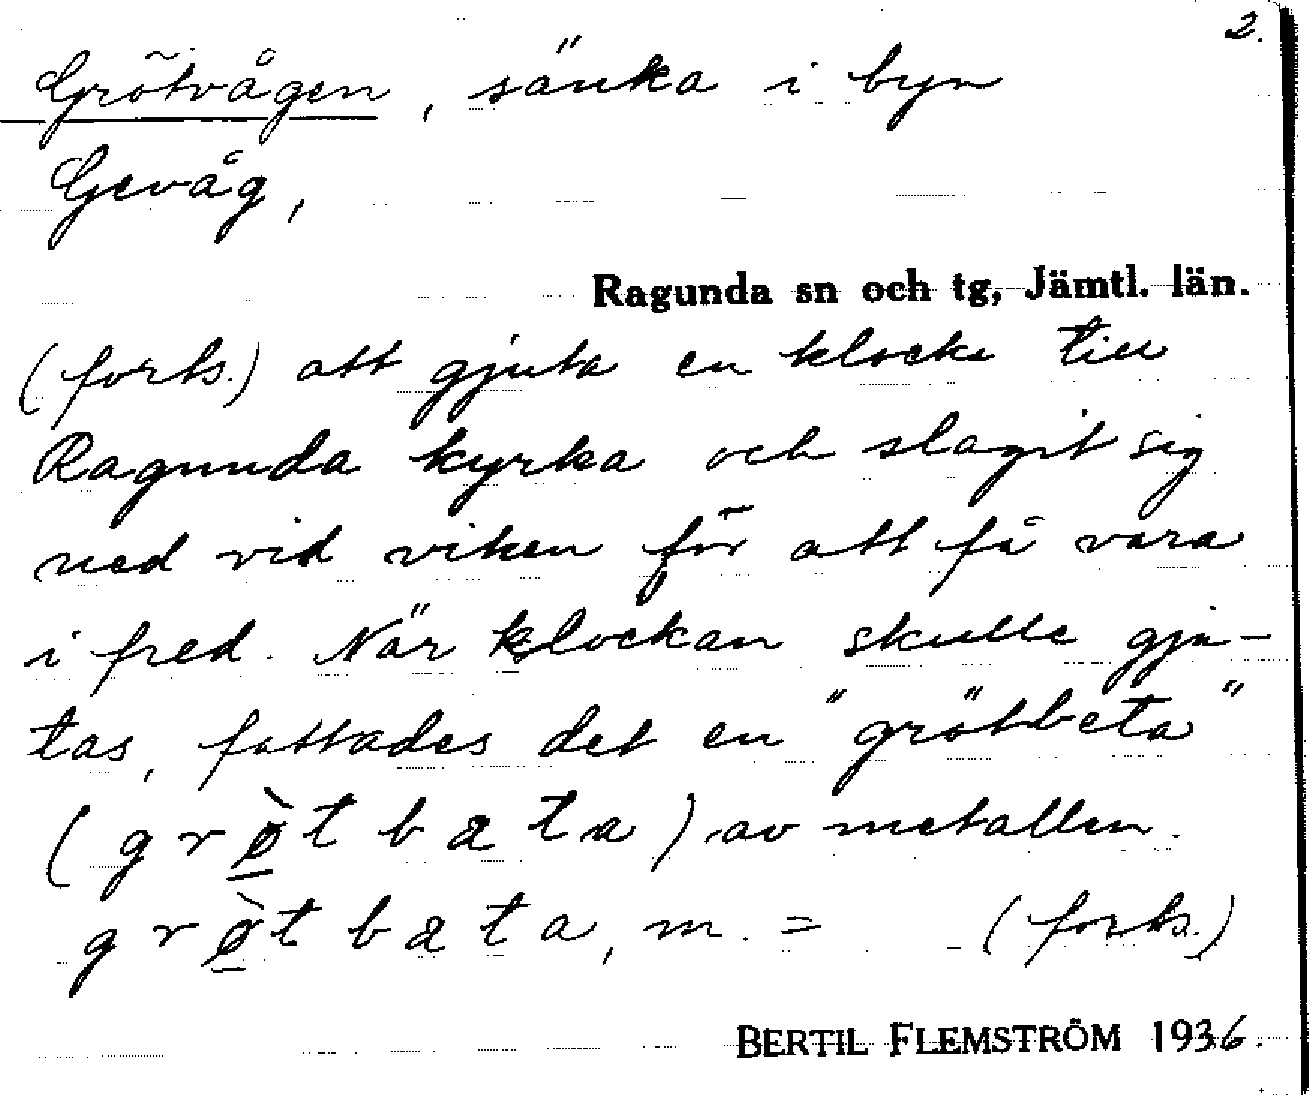 2.
Grötvågen, sänka i byn
Gevåg,
Ragunda sn och tg, Jämtl. län.
(forts.) att gjuta en klocka till
Ragunda kyrka och slagit sig
ned vid viken för att få vara
i fred. När klockan skulle gju-
tas, fattades det en "grötbeta"
(grø̀tbata) av metallen.
grø̀tbata, m. = (forts.)
BERTIL FLEMSTRÖM 1936.